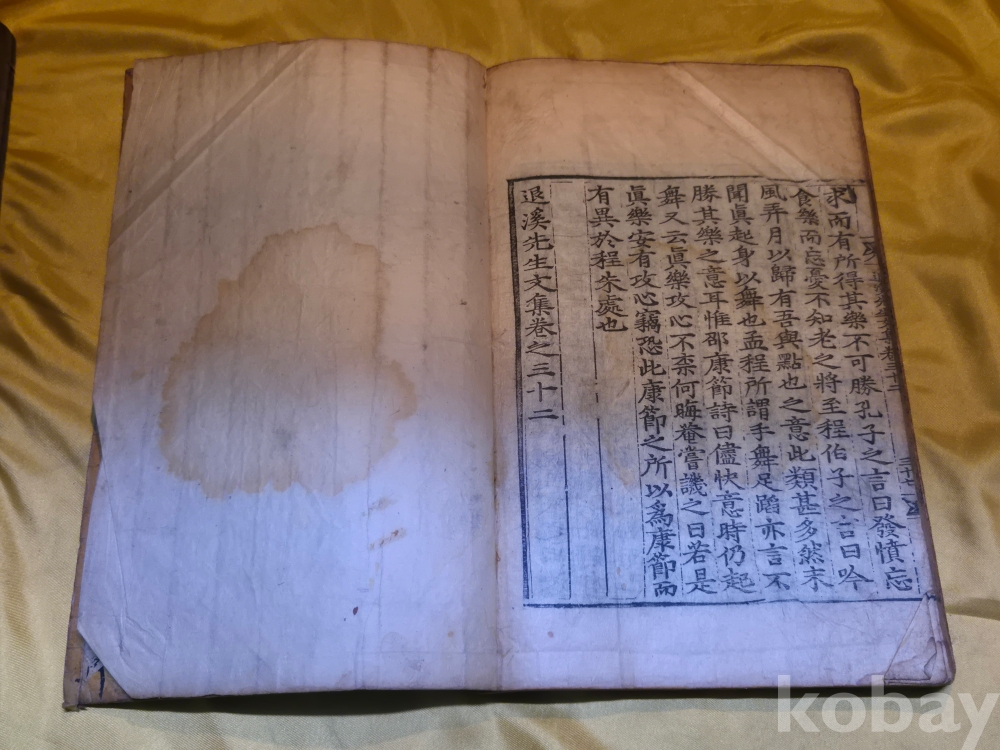 求而有所得其樂不可勝孔子之言曰發憤忘
食樂而忘憂不知老之將至程伯子之言曰吟
風弄月以歸有吾與點也之意此類甚多然未
聞眞起身以舞也孟程所謂手舞足蹈亦言不
勝其樂之意耳惟邵康節詩曰儘快意時仍起
舞又云眞樂攻心不柰何晦菴嘗譏之曰若是
眞樂安有攻心竊恐此康節之所以爲康節而
有異於程朱處也
退溪先生文集卷之三十二
kobay